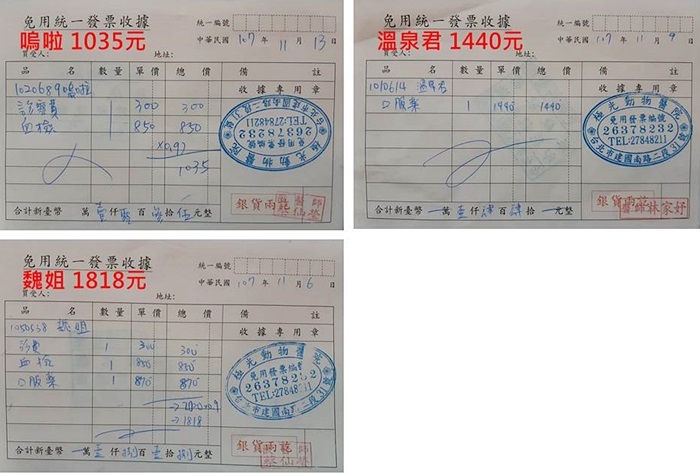 免用統一發票收據
嗚啦 1035元
統一編號
中華民國 107年 11月 13日
買受人:
地址:
品名 數量 單價 總價 備註
1020689 嗚啦
收據專用章
診察費 1 300 300
血檢 1 850 850
×0.9
1035
極光動物醫院
免用發票編號
26378232
TEL:27848211
台北市建國南路二段31號
銀貨兩訖
合計新臺幣 萬壹仟 百 拾伍元整
免用統一發票收據
溫泉君 1440元
統一編號
中華民國 107年 11月 9日
買受人:
地址:
品名 數量 單價 總價 備註
1010614 溫泉君
收據專用章
口服藥 1 1440 1440
極光動物醫院
免用發票編號
26378232
TEL:27848211
台北市建國南路二段31號
銀貨兩訖
醫師林家妤
合計新臺幣 萬壹仟肆百肆拾 元整
免用統一發票收據
魏姐 1818元
統一編號
中華民國 107年 11月 6日
買受人:
地址:
品名 數量 單價 總價 備註
魏姐
收據專用章
診費 1 300 300
血檢 1 850 850
口服藥 1 870 870
→2020×0.9
→1818
極光動物醫院
免用發票編號
26378232
TEL:27848211
台北市建國南路二段31號
銀貨兩訖
合計新臺幣 萬壹仟捌百壹拾捌元整